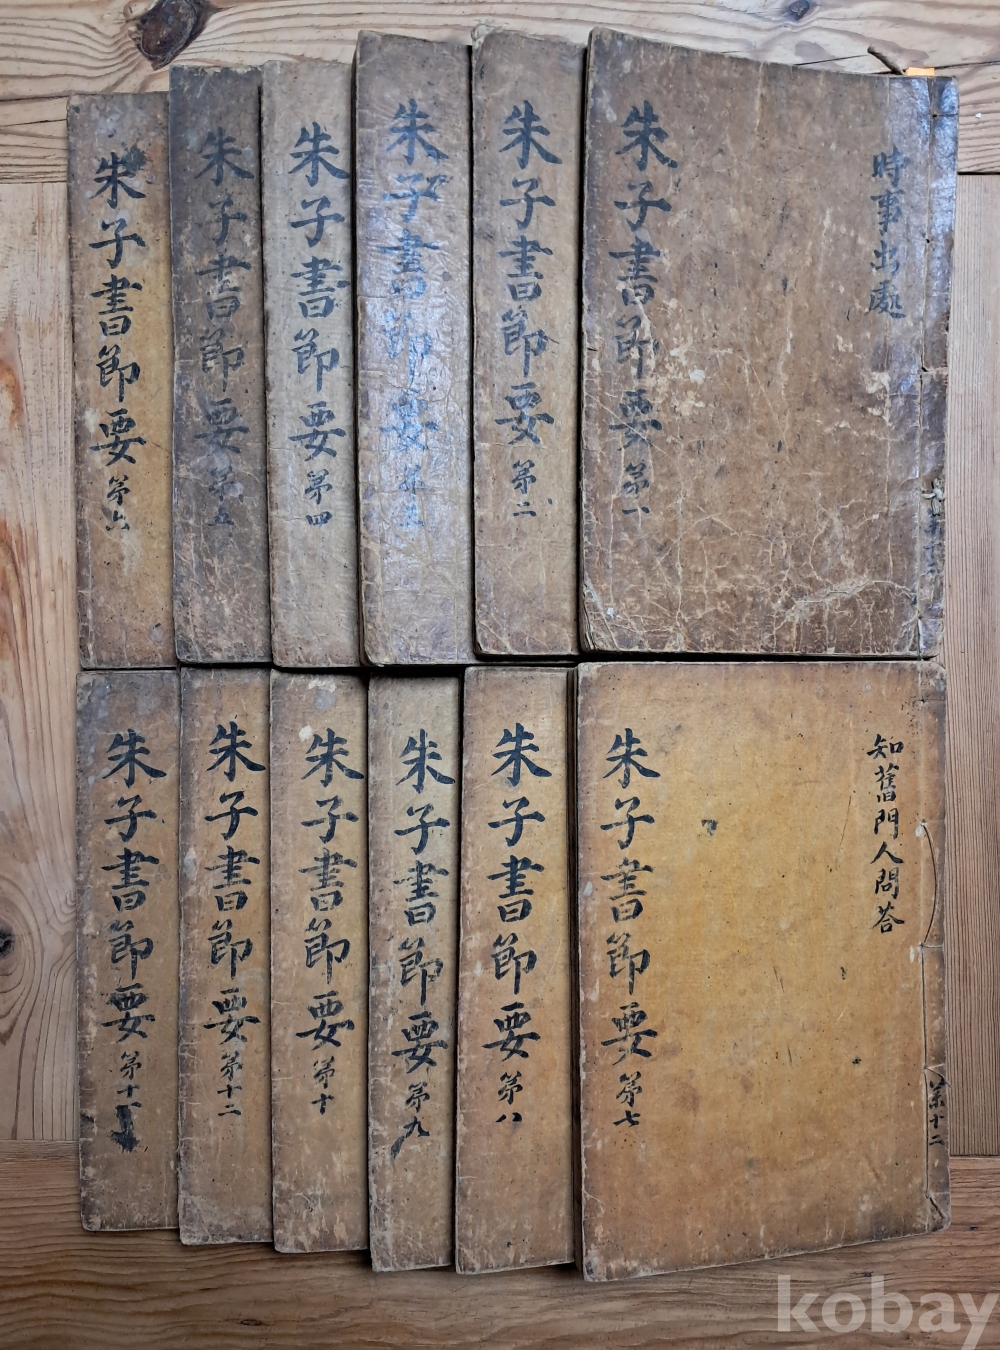 朱子書節要 第一
時事出處
朱子書節要 第二
朱子書節要 第三
朱子書節要 第四
朱子書節要 第五
朱子書節要 第六
朱子書節要 第七
知舊門人問答
共十二
朱子書節要 第八
朱子書節要 第九
朱子書節要 第十
朱子書節要 第十二
朱子書節要 第十一
kobay